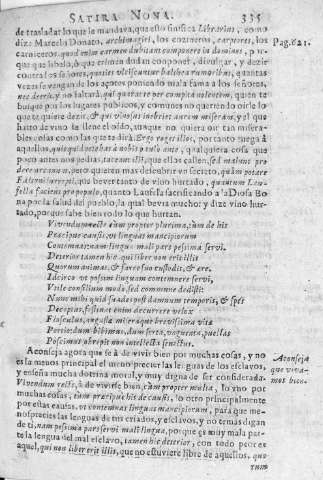 SATIRA NONA. 335
de trasladar lo que le mandava, que esto sinifica Librarius, como
dize Marcelo Donato, archimagiri, los cozineros, carptores, los
Pag. 621.
que las bebió, o que crimen dudan cooponer, divulgar, y dezir
contra los señores, quoties ulciscuntur baltea rumoribus, quantas
vezes se vengan de los açotes poniendo mala fama a los señores,
nec deerit, y no faltará, qui quaerat te per compita nolentem, quien te
busque por los lugares publicos, y comunes no queriendo oir le lo
que te quiere dezir, & qui vinosus inebriet aurem miseram, y el que
harto de vino te llene el oido, aunque no quiera oir tan misera-
bles cosas como las que te dirá. Ergo roges illos, por tanto ruega á
aquellos, quicquid petebas a nobis paulo ante, qualquiera cosa que
poco antes nos pedias, taceant illi, que ellas callen, sed malunt pro
dere arcanum, pero quieren mas descubrir vn secreto, quam potare
Falerni surrepti, que bever tanto de vino hurtado, quantum Lau-
fella faciens pro populo, quanto Laufella sacrificando a la Diosa Bo
na por la salud del pueblo, la qual bevia mucho: y dize vino hur-
tado, porque sabe bien todo lo que hurtan.
Vivendum recte cum propter plurima, tum de his
Praecipue causis, ut linguas mancipiorum
Contemnas: nam lingua mali pars pessima servi.
Deterior tamen hic, qui liber non erit illis
Quorum animas, & farre suo custodit, & aere.
Idcirco ut possim linguam contemnere servi,
Utile consilium modo, sed commune dedisti:
Nunc mihi quid suades post damnum temporis, & spes
Deceptas, festinat enim decurrere velox
Flosculus, angustae miseraeque brevissima vitae
Portio: dum bibimus, dum serta, unguenta, puellas
Poscimus, obrepit non intellecta senectus.
Aconseja agora que se á de vivir bien por muchas cosas, y no
Aconseja
es la menos principal el meno preciar las lenguas de los esclavos,
que viva-
y enseña mucha dotrina moral, y muy digna de ser considerada.
mos bien.
Vivendum recte, á de vivirse bien, cum propter multa, lo vno por
muchas cosas, tum praecipue his de causis, lo otro principalmente
por estas causas, ut contemnas linguas mancipiorum, para que me-
nosprecies las lenguas de tus criados, y esclavos, y no temas digan
de ti, nam pessima pars servi mali lingua, porque es muy mala par-
te la lengua del mal esclavo, tamen hic deterior, con todo peor es
aquel, qui non liber erit illis, que no estuviere libre de aquellos, quo-
rum